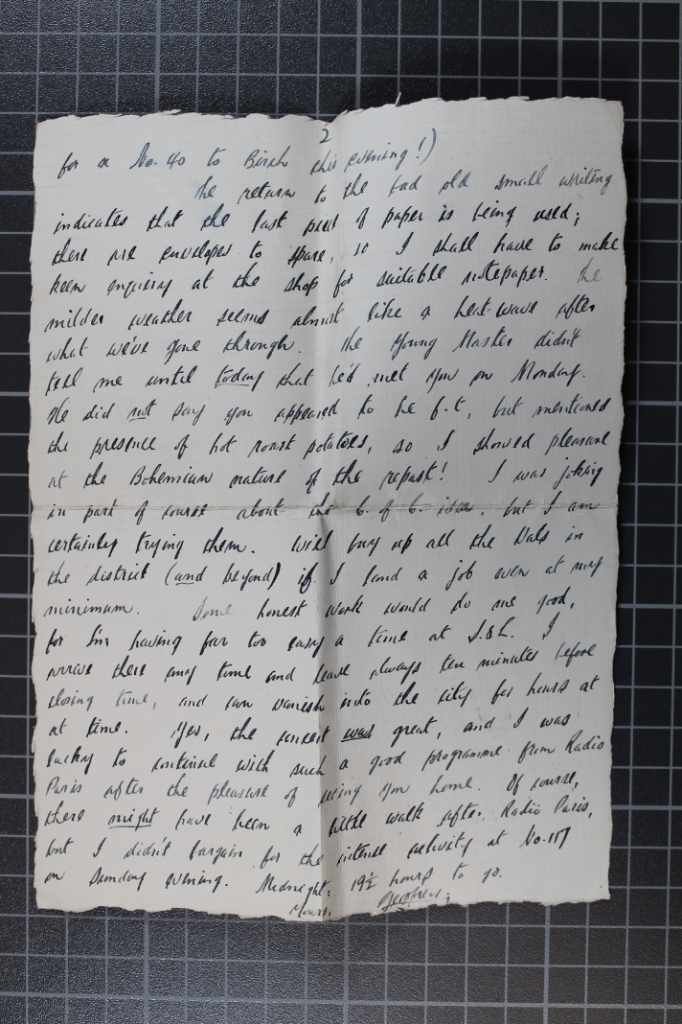 2
for a No. 40 to Birch this evening!)
The return to the bad old small writing
indicates that the last pad of paper is being used;
there are envelopes to spare, so I shall have to make
keen enquiry at the shop for suitable notepaper. The
milder weather seems almost like a heat-wave after
what we've gone through. The Young Master didn't
tell me until today that he'd met you on Monday.
He did not say you appeared to be f.t, but mentioned
the presence of hot roast potatoes, so I showed pleasure
at the Bohemian nature of the repast! I was joking
in part of course about the C. of C. idea, but I am
certainly trying them. Will buy up all the Vals in
the district (and beyond) if I land a job even at my
minimum. Some honest work would do me good,
for I'm having far too easy a time at J.&L. I
arrive there any time and leave always ten minutes before
closing time, and can vanish into the city for hours at
at time. Yes, the concert was great, and I was
lucky to continue with such a good programme from Radio
Paris after the pleasure of seeing you home. Of course,
there might have been a little walk after Radio Paris,
but I didn't bargain for the intense activity at No. 107
on Sunday evening. Midnight: 19½ hours to go.
Yours,